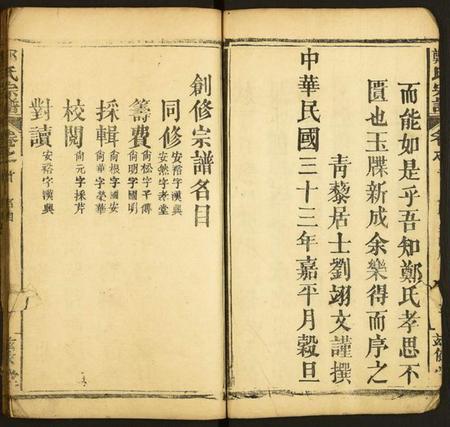 鄭氏宗譜
而能如是乎吾知鄭氏孝思不
匱也玉牒新成余樂得而序之
青藜居士劉翊文謹撰
中華民國三十三年嘉平月穀旦
創修宗譜名目
同修 安裕字漢興
安然字孝堂
籌費 尙松字千傳
尙明字國明
採輯 尙根字國安
尙華字榮華
校閱 尙元字採芹
對讀 安裕字漢興
鄭氏宗譜
卷之首